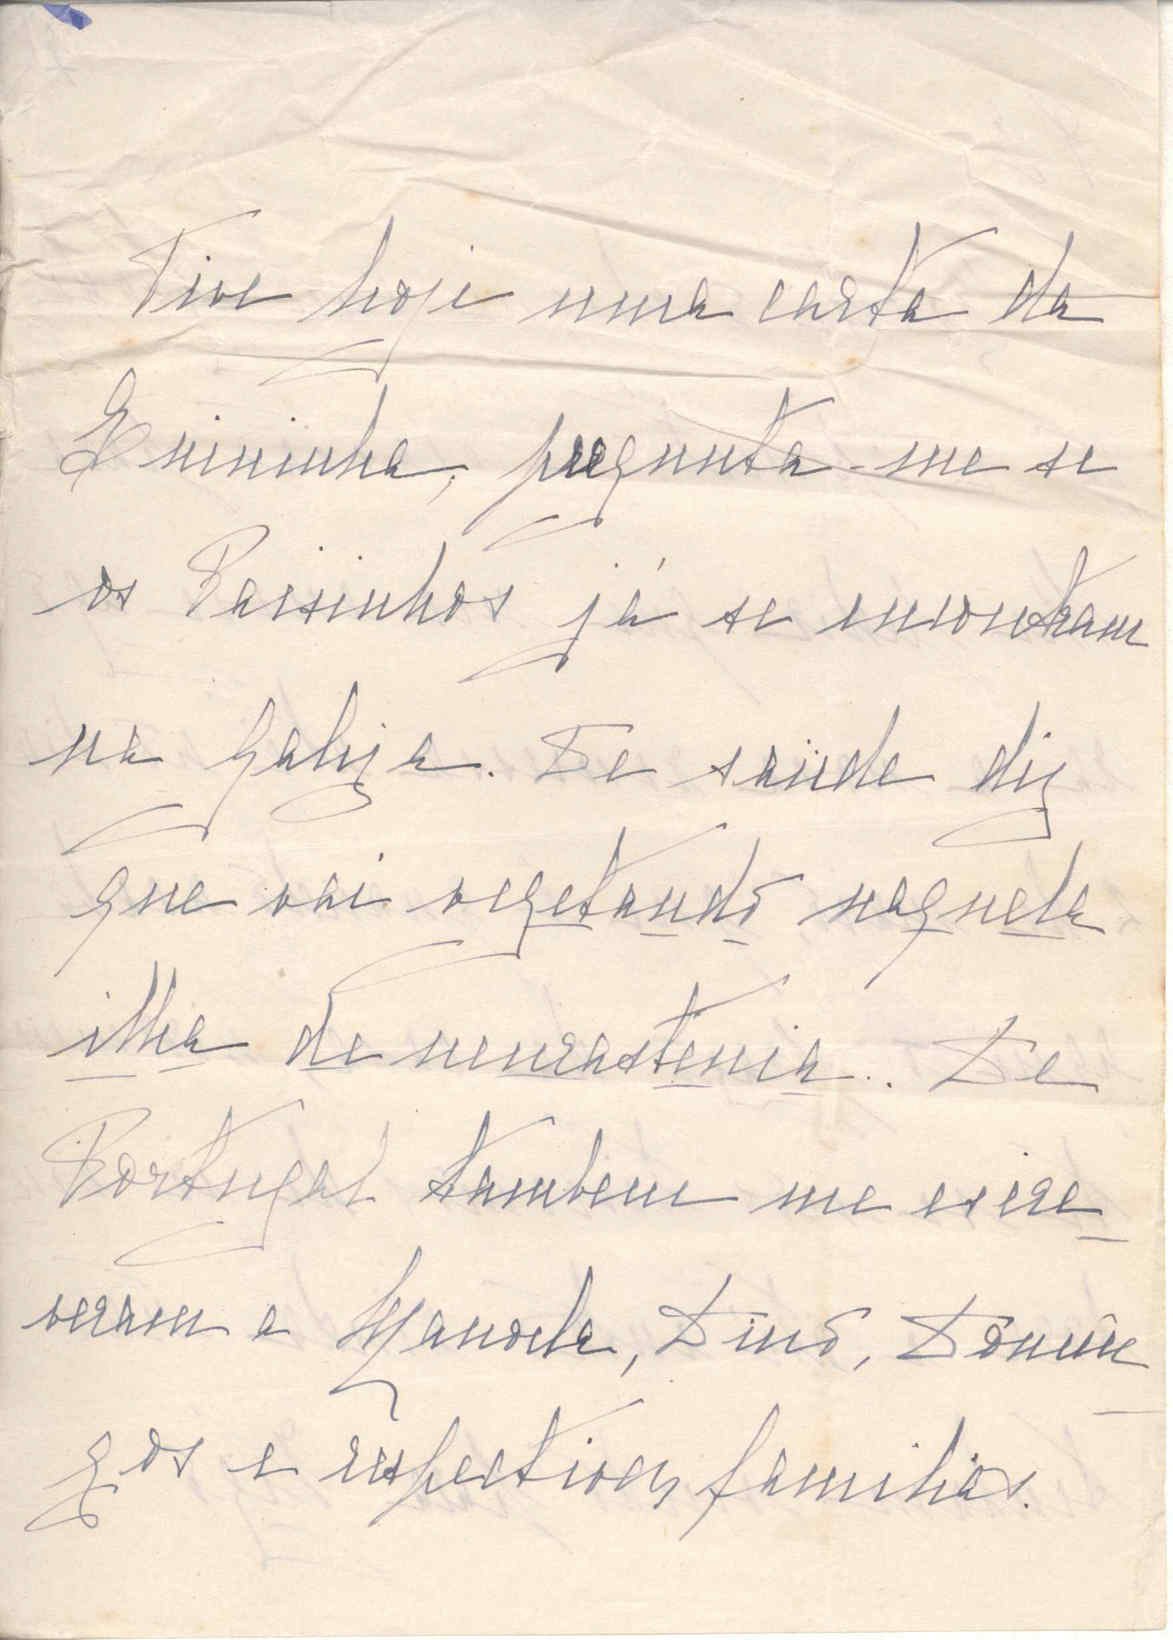 Tive hoje uma carta da
Enininha, pregunta-me se
os Paisinhos já se encontram
na Galiza. De saúde diz
que vai vegetando naquela
ilha de neurastenia.. De
Portugal tambem me escre_
veram a Manoela, Dino, Domin_
gos e respectivas familias.